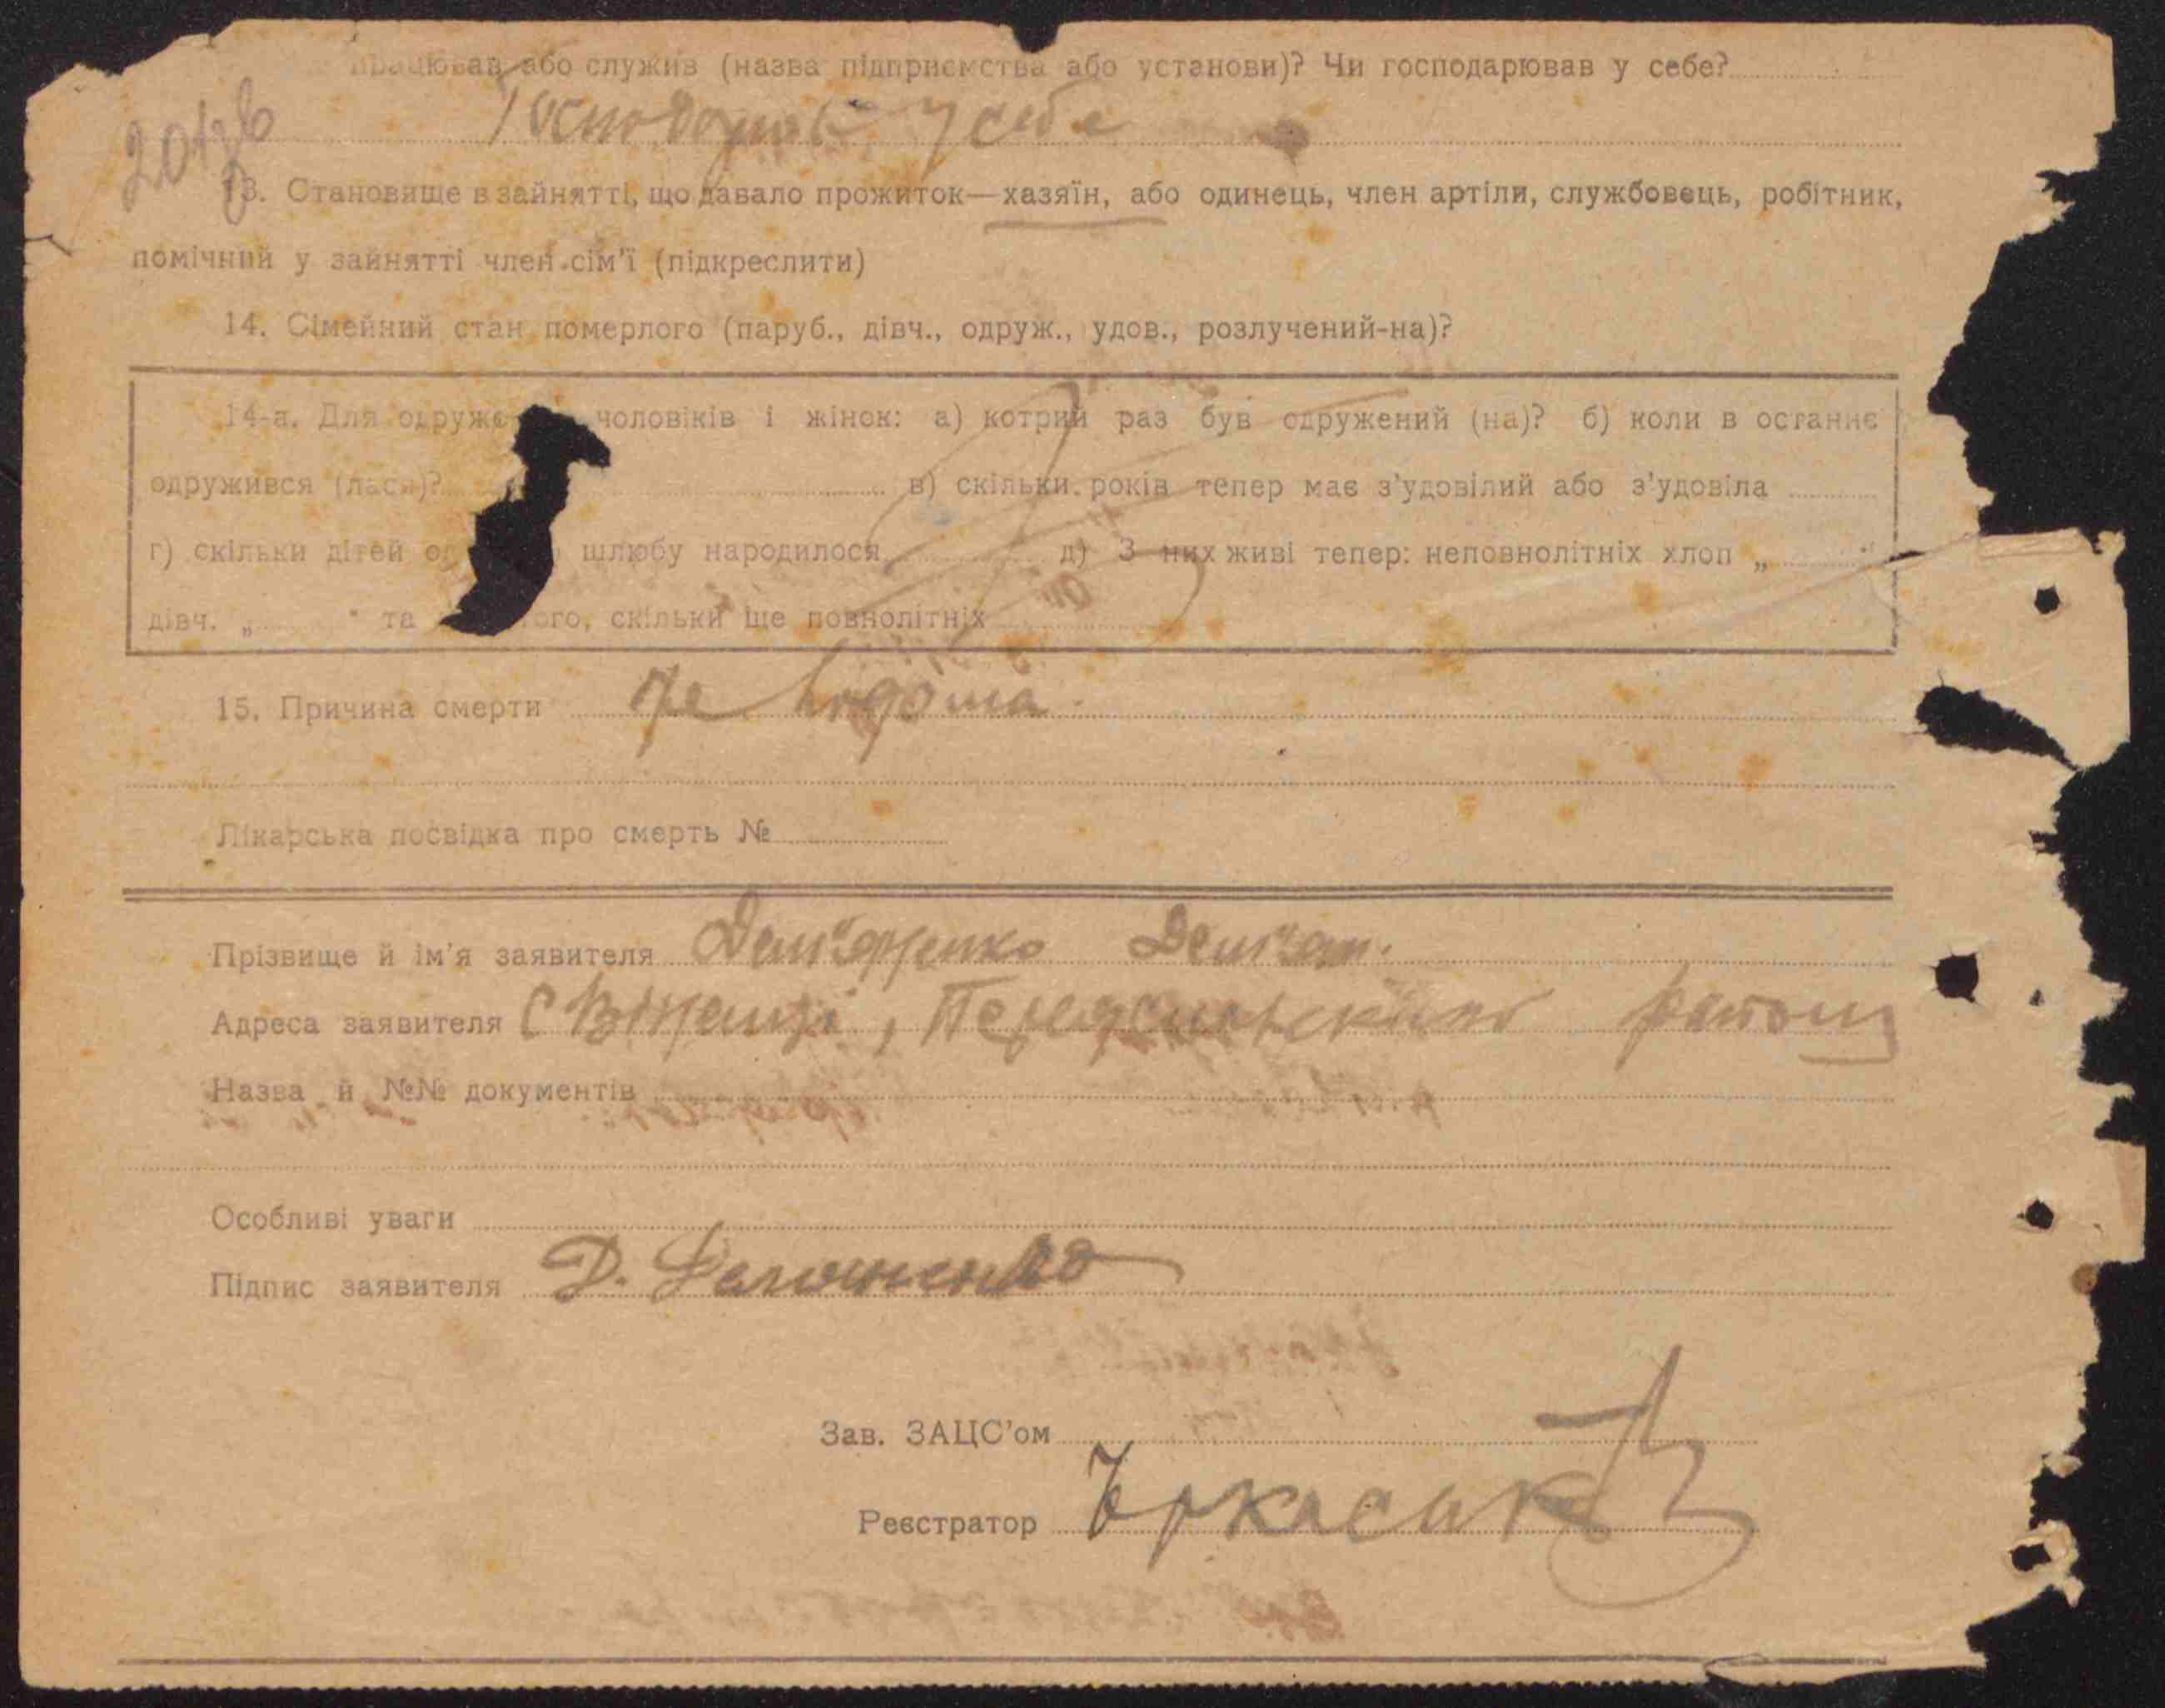 працював або служив (назва підприємства або установи)? Чи господарював у себе?
201зв
Господарював у себе
13. Становище в зайнятті, що давало прожиток—хазяїн, або одинець, член артіли, службовець, робітник,
помічний у зайнятті член сім'ї (підкреслити)
14. Сімейний стан померлого (паруб., дівч., одруж., удов., розлучений-на)?
14-а. Для одруже чоловіків і жінок: а) котрий раз був одружений (на)? б) коли в останнє
одружився (лася)? в) скільки років тепер має з'удовілий або з'удовіла
г) скільки дітей од шлюбу народилося д) З них живі тепер: неповнолітніх хлоп „ "
дівч. „ " та ого, скільки ще повнолітніх
15. Причина смерти не відома.
Лікарська посвідка про смерть №
Прізвище й ім'я заявителя Дем'яненко Дем'ян.
Адреса заявителя С В'юнищі, Переяславського району
Назва й №№ документів
Особливі уваги
Підпис заявителя Д.
Зав. ЗАЦС'ом
Реєстратор